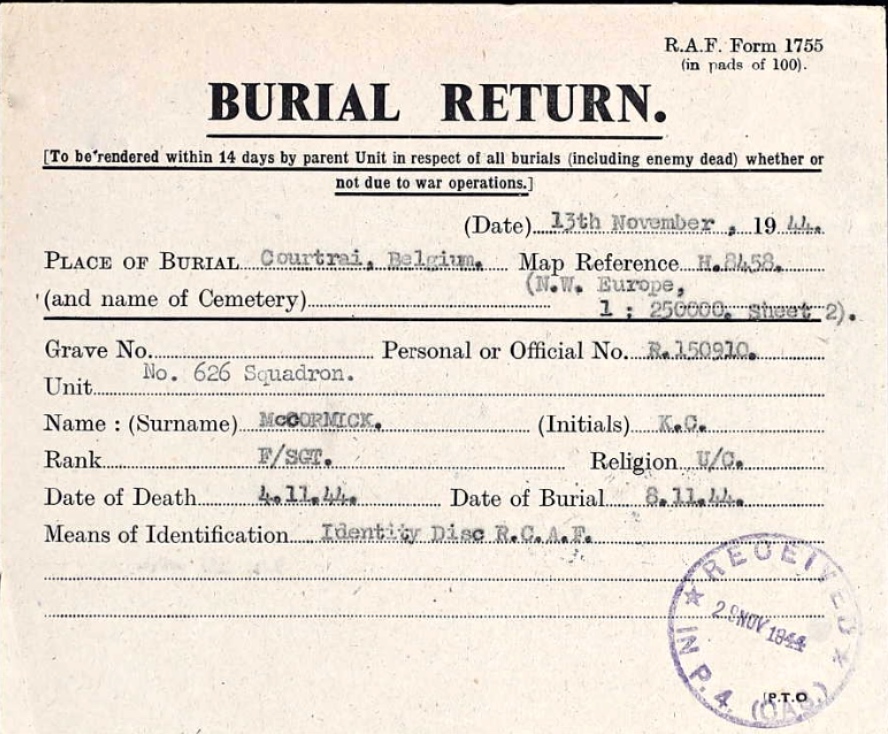 R.A.F. Form 1755
(in pads of 100).
BURIAL RETURN.
[To be rendered within 14 days by parent Unit in respect of all burials (including enemy dead) whether or
not due to war operations.]
(Date) 13th November , 19 44.
PLACE OF BURIAL Courtrai, Belgium. Map Reference H.8458.
(and name of Cemetery) (N.W. Europe,
1 : 250000. Sheet 2).
Grave No. Personal or Official No. R.150910.
Unit No. 626 Squadron.
Name : (Surname) McCORMICK. (Initials) K.C.
Rank F/SGT. Religion U/C.
Date of Death 4.11.44. Date of Burial 8.11.44.
Means of Identification Identity Disc R.C.A.F.
★ RECEIVED ★
29 NOV 1944
IN P.4. (CAS.)
(P.T.O